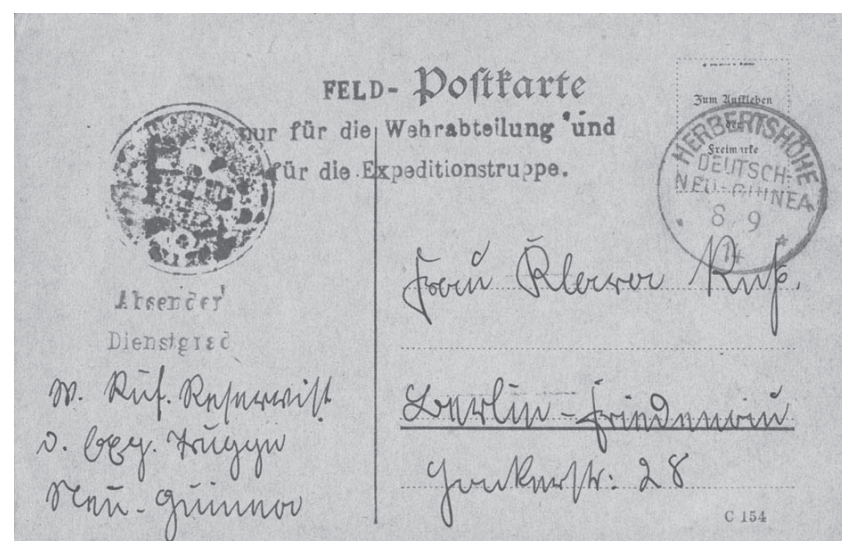 FELD- Postkarte
nur für die Wehrabteilung und
für die Expeditionstruppe.
Zum Aufkleben
der
Freimarke
HERBERTSHÖHE
DEUTSCH-
NEU-GUINEA
8 9
14
Absender
Dienstgrad
W. Ruß. Reservist
d. Exp. Truppe
Neu-Guinea
Frau Klara Ruß.
Berlin-Friedenau
28
C 154